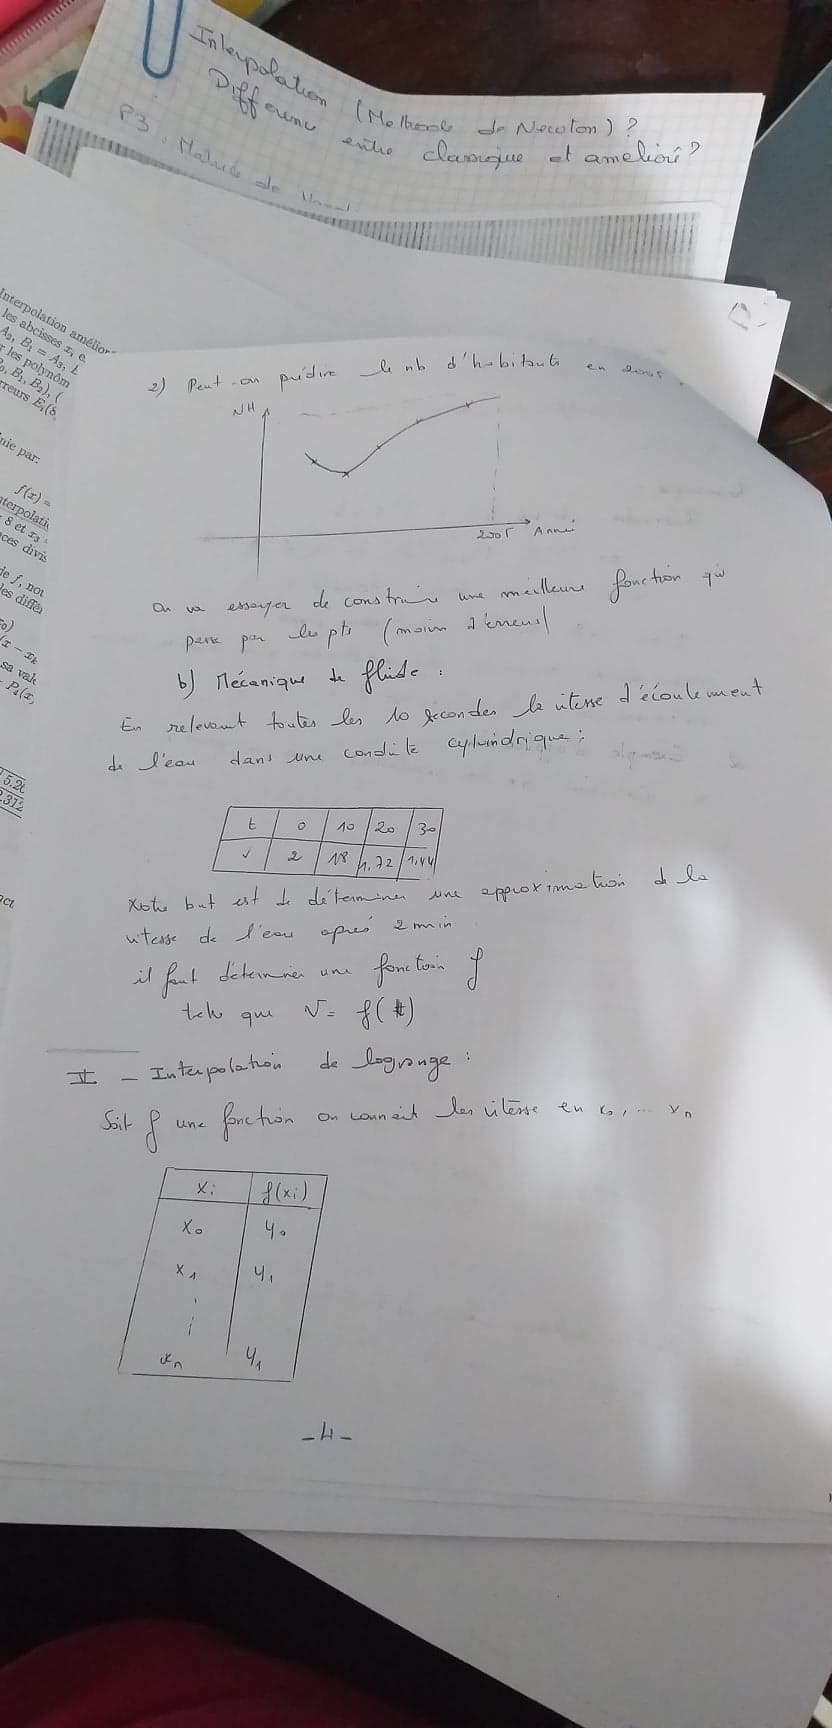 Interpolation (Methode de Newton) ?
Différence entre classique et amelioré ?
P3 :
Interpolation amélior
les abcisses xi e
A2, B1 = A3, 
r les polynôm
B1, B2), (
rreurs Ei(8
nie par:
f(x) =
terpolati
8 et x3 =
ces divis
de f, not
les diffé
(x - x
sa vale
P2(x
5.26
2.312
2) Peut-on prédire le nb d'habitants en 2005.
NH
2005 Année
On va essayer de construire une meilleure fonction qui
passe par les pts (moins d'erreurs)
b) Mécanique de fluide :
En relevant toutes les 10 secondes la vitesse d'écoulement
de l'eau dans une conduite cylindrique :
t 0 10 20 30
v 2 1,8 1,72 1,44
Notre but est de déterminer une approximation de la
vitesse de l'eau après 2 min
il faut déterminer une fonction f
telle que V = f(t)
II - Interpolation de lagrange :
Soit f une fonction on connait les vitesse en x0, ... xn
xi f(xi)
x0 y0
x1 y1
xn y1
-4-